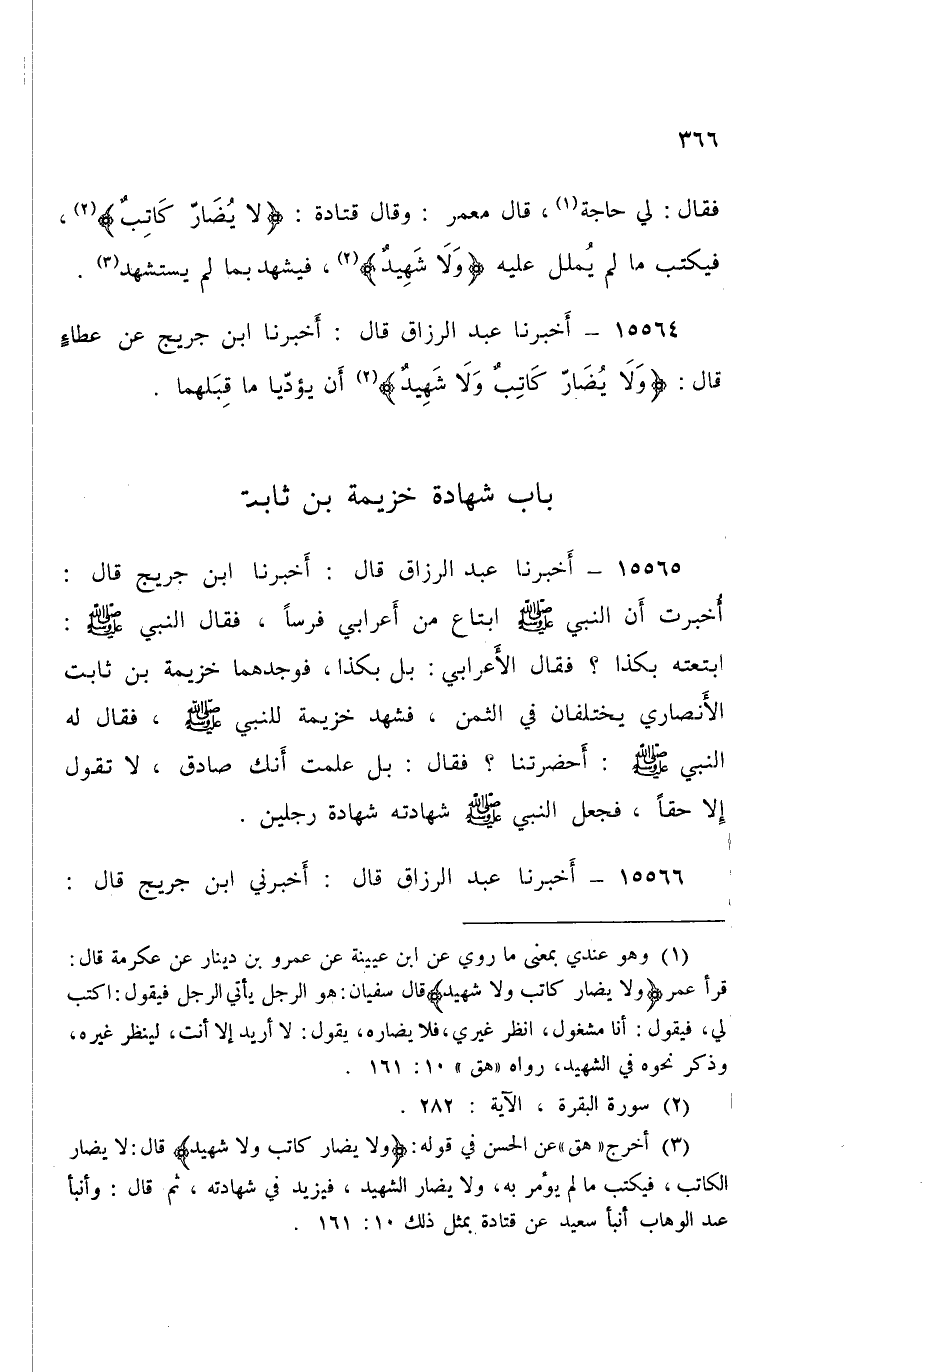 ٣٦٦
فقال : لي حاجة(١) ، قال معمر : وقال قتادة : ﴿لا يُضَارّ كَاتِبٌ﴾(٢) ،
فيكتب ما لم يُملل عليه ﴿وَلَا شَهِيدٌ﴾(٢) ، فيشهد بما لم يستشهد(٣) .
١٥٥٦٤ – أَخبرنا عبد الرزاق قال : أَخبرنا ابن جريج عن عطاءٍ
قال : ﴿وَلَا يُضَارّ كَاتِبٌ وَلَا شَهِيدٌ﴾(٢) أَن يؤدّيا ما قِبَلهما .
باب شهادة خزيمة بن ثابت
١٥٥٦٥ – أَخبرنا عبد الرزاق قال : أَخبرنا ابن جريج قال :
أُخبرت أَن النبي ﷺ ابتاع من أَعرابي فرساً ، فقال النبي ﷺ :
ابتعته بكذا ؟ فقال الأَعرابي : بل بكذا ، فوجدهما خزيمة بن ثابت
الأَنصاري يختلفان في الثمن ، فشهد خزيمة للنبي ﷺ ، فقال له
النبي ﷺ : أَحضرتنا ؟ فقال : بل علمت أَنك صادق ، لا تقول
إِلا حقاً ، فجعل النبي ﷺ شهادته شهادة رجلين .
١٥٥٦٦ – أَخبرنا عبد الرزاق قال : أَخبرني ابن جريج قال :
(١) وهو عندي بمعنى ما روي عن ابن عيينة عن عمرو بن دينار عن عكرمة قال :
قرأ عمر ﴿ولا يضار كاتب ولا شهيد﴾ قال سفيان : هو الرجل يأتي الرجل فيقول : اكتب
لي ، فيقول : أنا مشغول ، انظر غيري ، فلا يضاره ، يقول : لا أريد إلا أنت ، لينظر غيره ،
وذكر نحوه في الشهيد ، رواه «هق» ١٠ : ١٦١ .
(٢) سورة البقرة ، الآية : ٢٨٢ .
(٣) أخرج «هق» عن الحسن في قوله : ﴿ولا يضار كاتب ولا شهيد﴾ قال : لا يضار
الكاتب ، فيكتب ما لم يؤمر به ، ولا يضار الشهيد ، فيزيد في شهادته ، ثم قال : وأنبأ
عبد الوهاب أنبأ سعيد عن قتادة بمثل ذلك ١٠ : ١٦١ .